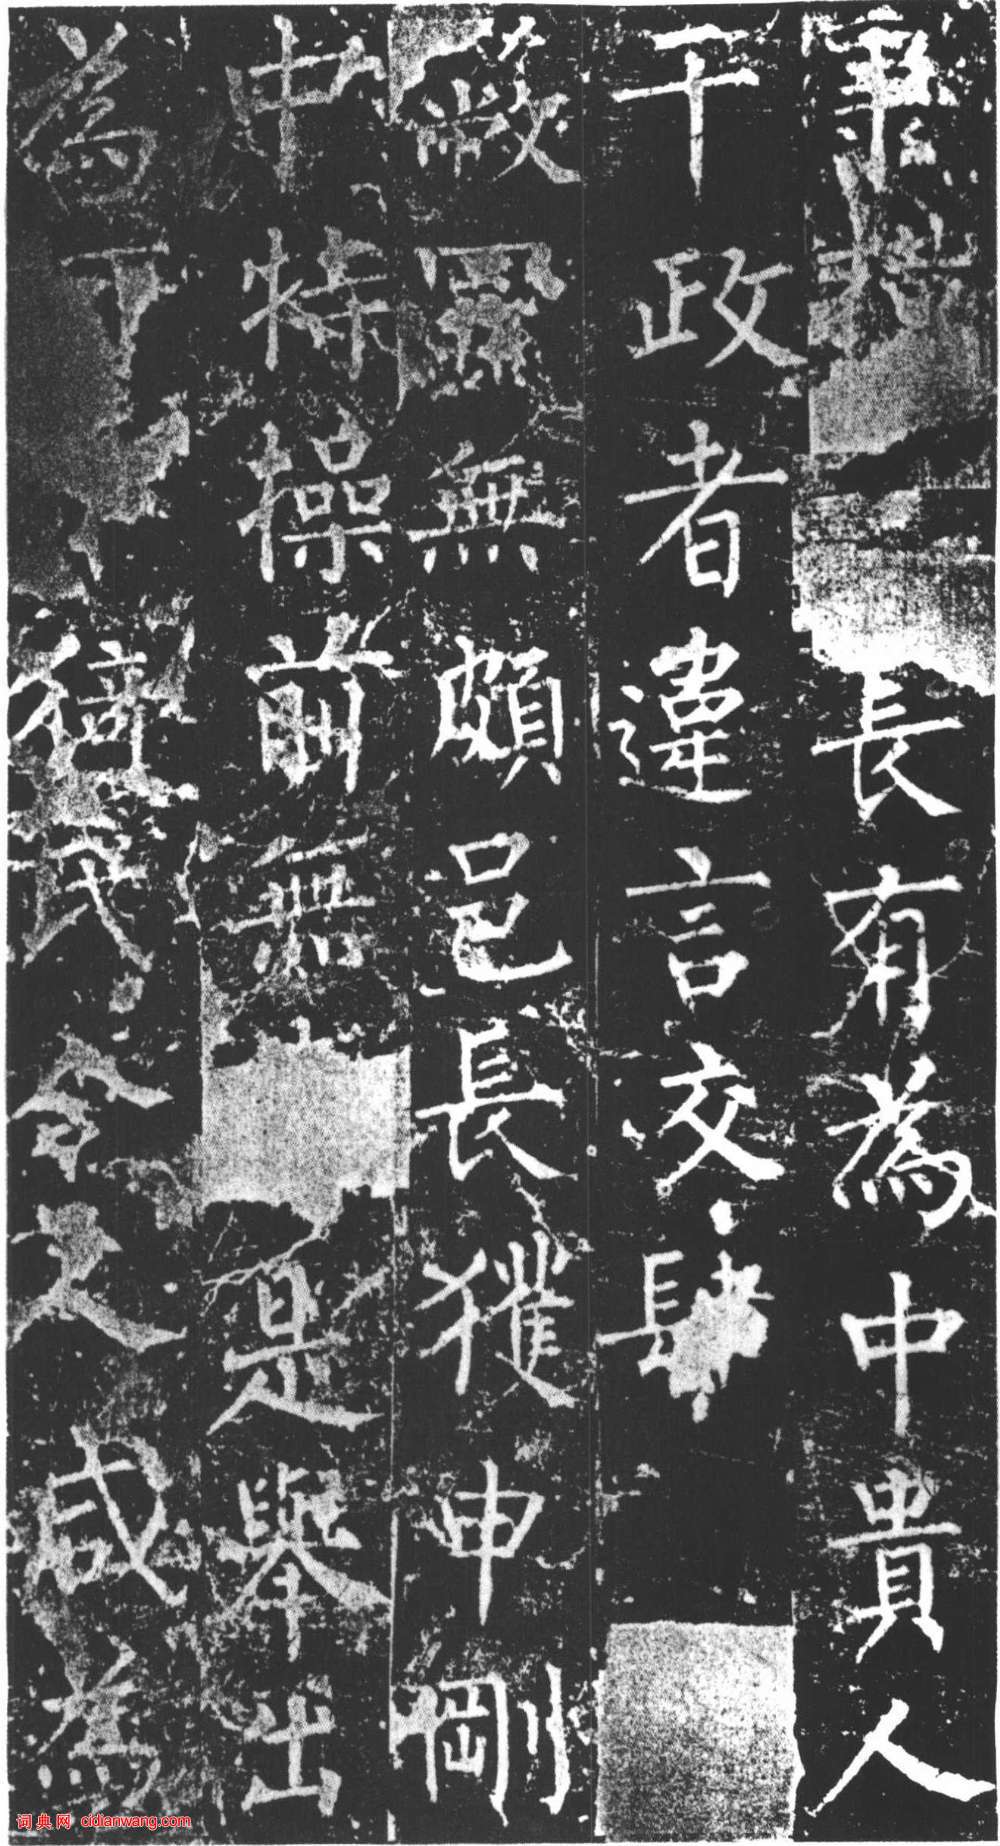 長有為中貴人
干政者違言交肆
無頗邑長獲申剛
中特操前無是舉出
為下猗氏令又咸為
词典网 cidianwang.com